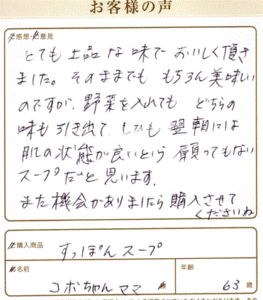 お客様の声
ご感想・ご意見
とても上品な味でおいしく頂き
ました。そのままでももちろん美味しい
のですが、野菜を入れても どちらの
味も引き出て しかも 翌朝には
肌の状態が良いという 願ってもない
スープだと思います。
また機会がありましたら購入させて
くださいね
購入商品 すっぽんスープ
お名前 コボちゃんママ 年齢 63 歳